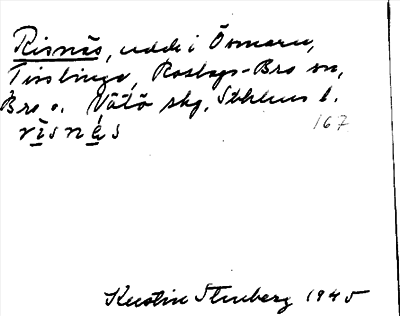 Risnäs, udde i Össmaren,
Tisslinge, Roslags-Bro sn,
Bro o. Vätö skg, Sthlms l.
risnæs
167
Kerstin Stenberg 1945